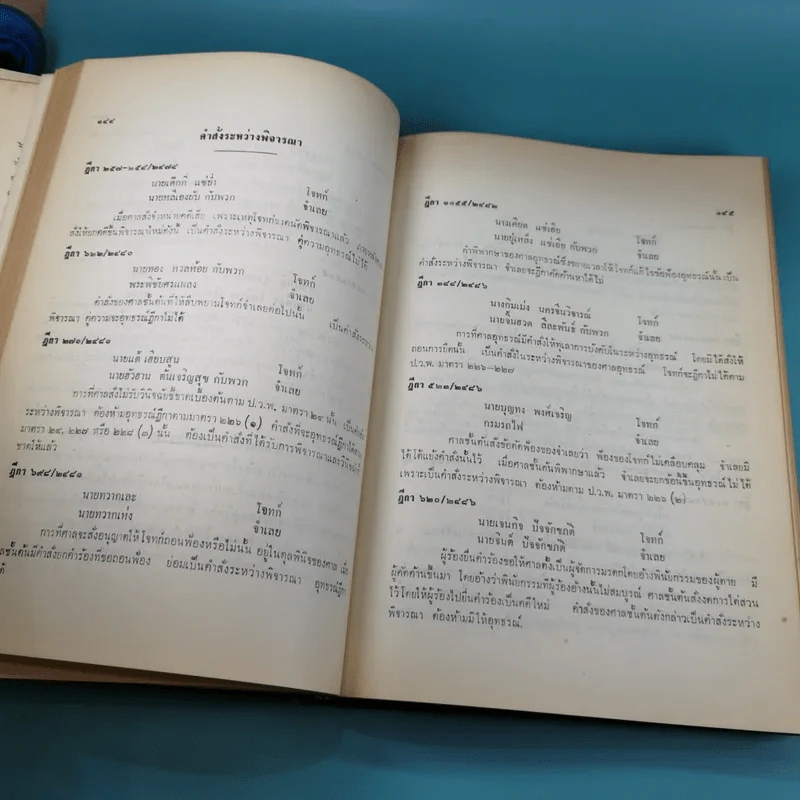 ๑๔๔
คำสั่งระหว่างพิจารณา
ฎีกา ๒๕๗-๒๕๘/๒๔๗๔
นายเต็กกี่ แซ่ย่ำ โจทก์
นายหลีเองยับ กับพวก จำเลย
เมื่อศาลสั่งจำหน่ายคดีเสีย เพราะเหตุโจทก์ขาดนัดพิจารณาแล้ว
สั่งให้ยกคดีขึ้นพิจารณาใหม่ดังนี้ เป็นคำสั่งระหว่างพิจารณา คู่ความอุทธรณ์ไม่ได้
ฎีกา ๖๒๒/๒๔๘๐
นายทอง หวลห้อย กับพวก โจทก์
พระพิชัยศรแผลง จำเลย
คำสั่งของศาลชั้นต้นที่ให้สืบพยานโจทก์จำเลยต่อไปนั้น เป็นคำสั่งระหว่าง
พิจารณา คู่ความจะอุทธรณ์ฎีกาไม่ได้
ฎีกา ๒๗๐/๒๔๘๑
นายแต้ เฮียบสูน โจทก์
นายฮั่วอาน ตันเจริญสุข กับพวก จำเลย
การที่ศาลสั่งไม่รับวินิจฉัยชี้ขาดเบื้องต้นตาม ป.ว.พ. มาตรา ๒๔ นั้น เป็นคำสั่ง
ระหว่างพิจารณา ต้องห้ามอุทธรณ์ฎีกาตามมาตรา ๒๒๖ (๑) คำสั่งที่จะอุทธรณ์ฎีกาได้ตาม
มาตรา ๒๔, ๒๒๗ หรือ ๒๒๘ (๓) นั้น ต้องเป็นคำสั่งที่ได้รับการพิจารณาและวินิจฉัยชี้
ขาดให้แล้ว
ฎีกา ๖๙๘/๒๔๘๑
นายทวากเละ โจทก์
นายทวากเท่ง จำเลย
การที่ศาลจะสั่งอนุญาตให้โจทก์ถอนฟ้องหรือไม่นั้น อยู่ในดุลพินิจของศาล เมื่อ
ศาลชั้นต้นมีคำสั่งยกคำร้องที่ขอถอนฟ้อง ย่อมเป็นคำสั่งระหว่างพิจารณา อุทธรณ์ฎีกา
ฎีกา ๑๐๕๕/๒๔๘๒
๑๔๕
นายเคียด แซ่เฮีย โจทก์
นายยู่เหล็ง แซ่เฮีย กับพวก จำเลย
คำพิพากษาของศาลอุทธรณ์ซึ่งขยายเวลาให้โจทก์แก้ไขข้อฟ้องอุทธรณ์นั้น เป็น
คำสั่งระหว่างพิจารณา จำเลยจะฎีกาคัดค้านหาได้ไม่
ฎีกา ๓๔๔/๒๔๘๖
นางกิมเม่ง นครจินวิจารณ์ โจทก์
นายจั่นฮวด ลีละพันธ์ กับพวก จำเลย
การที่ศาลอุทธรณ์มีคำสั่งให้ทุเลาการบังคับในระหว่างอุทธรณ์ โดยมิได้สั่งให้
ถอนการยึดนั้น เป็นคำสั่งในระหว่างพิจารณาของศาลอุทธรณ์ โจทก์จะฎีกาไม่ได้ตาม
ป.ว.พ. มาตรา ๒๒๖-๒๒๗
ฎีกา ๕๒๓/๒๔๘๖
นายบุญทูง พงศ์เจริญ โจทก์
กรมรถไฟ จำเลย
ศาลชั้นต้นสั่งข้อตัดฟ้องของจำเลยว่า ฟ้องของโจทก์ไม่เคลือบคลุม จำเลยมิ
ได้โต้แย้งคำสั่งนั้นไว้ เมื่อศาลชั้นต้นพิพากษาแล้ว จำเลยจะยกข้อนี้ขึ้นอุทธรณ์ไม่ได้
เพราะเป็นคำสั่งระหว่างพิจารณา ต้องห้ามตาม ป.ว.พ. มาตรา ๒๒๖ (๒)
ฎีกา ๖๒๐/๒๔๘๖
นายเจนกิจ ปัจจักขภัติ โจทก์
นายจินต์ ปัจจักขภัติ จำเลย
ผู้ร้องยื่นคำร้องขอให้ศาลตั้งเป็นผู้จัดการมรดกโดยอ้างพินัยกรรมของผู้ตาย มี
ผู้คัดค้านขึ้นมา โดยอ้างว่าพินัยกรรมที่ผู้ร้องอ้างนั้นไม่สมบูรณ์ ศาลชั้นต้นสั่งงดการไต่สวน
ไว้โดยให้ผู้ร้องไปยื่นคำร้องเป็นคดีใหม่ คำสั่งของศาลชั้นต้นดังกล่าวเป็นคำสั่งระหว่าง
พิจารณา ต้องห้ามมิให้อุทธรณ์.